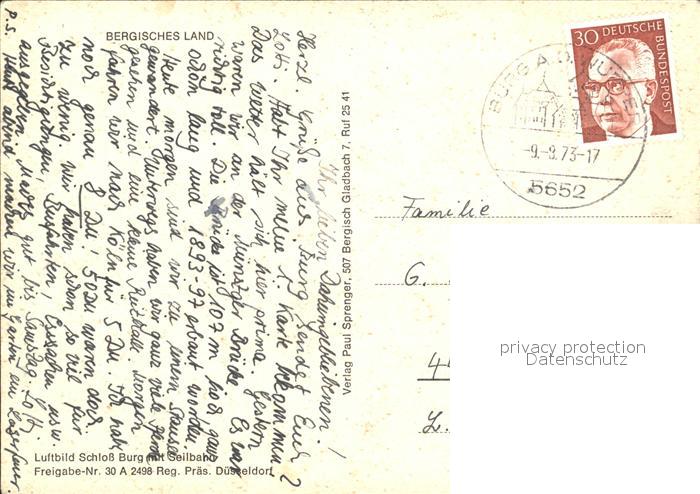 BERGISCHES LAND
30 DEUTSCHE BUNDESPOST
BURG A. D. WUPPER
-9.-8.73-17
5652
Ihr lieben Daheimgebliebenen!
Herzl. Grüße aus Burg sendet Euch
Lotti. Habt Ihr meine 1. Karte bekommen?
Das Wetter hält sich hier prima. Gestern
waren wir an der Müngstner Brücke. Es war
richtig toll. Die Brücke ist 107 m hoch ganz
schön lang und 1893-97 erbaut worden.
Heute morgen sind wir zu einem Stausee
gewandert. Unterwegs haben wir ganz viele Pferde
gesehen und eine kleine Reithalle. Morgen
fahren wir nach Köln für 5 DM. Ich hab
noch genau 8 DM. 50 DM waren doch
zu wenig. Wir haben schon so viel für
Besichtigungen, Busfahrten, Essachen usw.
ausgegeben. Machts gut bis Samstag. Lotti.
P.S. Heut abend machen wir im Garten ein Lagerfeuer
Verlag Paul Sprenger, 507 Bergisch Gladbach 7, Ruf 25 41
Familie
G.
44
L.
privacy protection
Datenschutz
Luftbild Schloß Burg mit Seilbahn
Freigabe-Nr. 30 A 2498 Reg. Präs. Düsseldorf